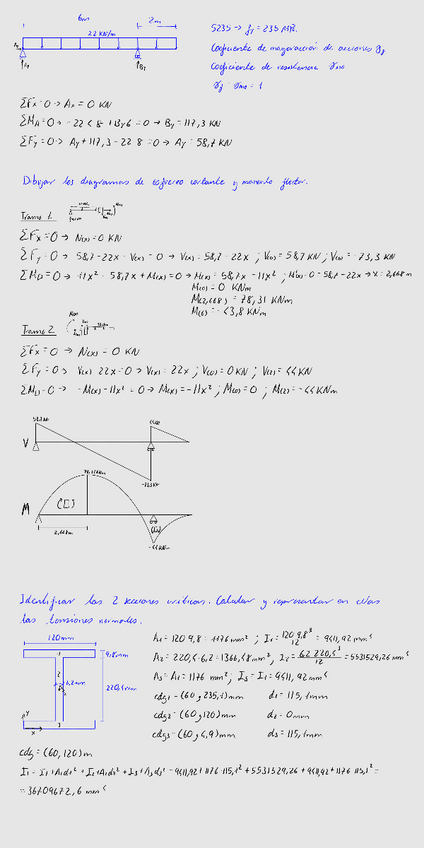 6m
2m
22 KN/m
Ay
By
S235 → fy = 235 MPa.
Coeficiente de mayoración de acciones γf
Coeficiente de resistencia γm0
γf γm0 = 1
ΣFx=0 → Ax = 0 KN
ΣMA=0 → -22·8·4 + By·6 = 0 → By = 117,3 KN
ΣFy=0 → Ay + 117,3 - 22·8 = 0 → Ay = 58,7 KN
Dibujar los diagramas de esfuerzo cortante y momento flector.
Tramo 1.
ΣFx=0 → N(x) = 0 KN
ΣFy=0 → 58,7 - 22x - V(x) = 0 → V(x) = 58,7 - 22x ; V(0) = 58,7 KN ; V(6) = -73,3 KN
ΣMD=0 → 11x² - 58,7x + M(x) = 0 → M(x) = 58,7x - 11x² ; M'(x) = 0 = 58,7 - 22x → x = 2,668 m
M(0) = 0 KNm
M(2,668) = 78,31 KNm
M(6) = -43,8 KNm
Tramo 2
ΣFx=0 → N(x) = 0 KN
ΣFy=0 → V(x) - 22x = 0 → V(x) = 22x ; V(0) = 0 KN ; V(2) = 44 KN
ΣMD=0 → -M(x) - 11x² = 0 → M(x) = -11x² ; M(0) = 0 ; M(2) = -44 KNm
V
M
2,668m
Identificar las 2 secciones críticas. Calcular y representar en ellas
las tensiones normales.
120 mm
9,8 mm
6,2 mm
220,4 mm
1
2
3
Y
X
A1 = 120·9,8 = 1176 mm² ; I1 = 120·9,8³/12 = 9411,92 mm⁴
A2 = 220,4·6,2 = 1366,48 mm² ; I2 = 6,2·220,4³/12 = 5531529,26 mm⁴
A3 = A1 = 1176 mm² ; I3 = I1 = 9411,92 mm⁴
cdg1 = (60, 235,1) mm d1 = 115,1 mm
cdg2 = (60, 120) mm d2 = 0 mm
cdg3 = (60, 4,9) mm d3 = 115,1 mm
cdg = (60, 120) m
I = I1 + A1d1² + I2 + A2d2² + I3 + A3d3² = 9411,92 + 1176·115,1² + 5531529,26 + 9411,92 + 1176·115,1² =
= 36709672,6 mm⁴